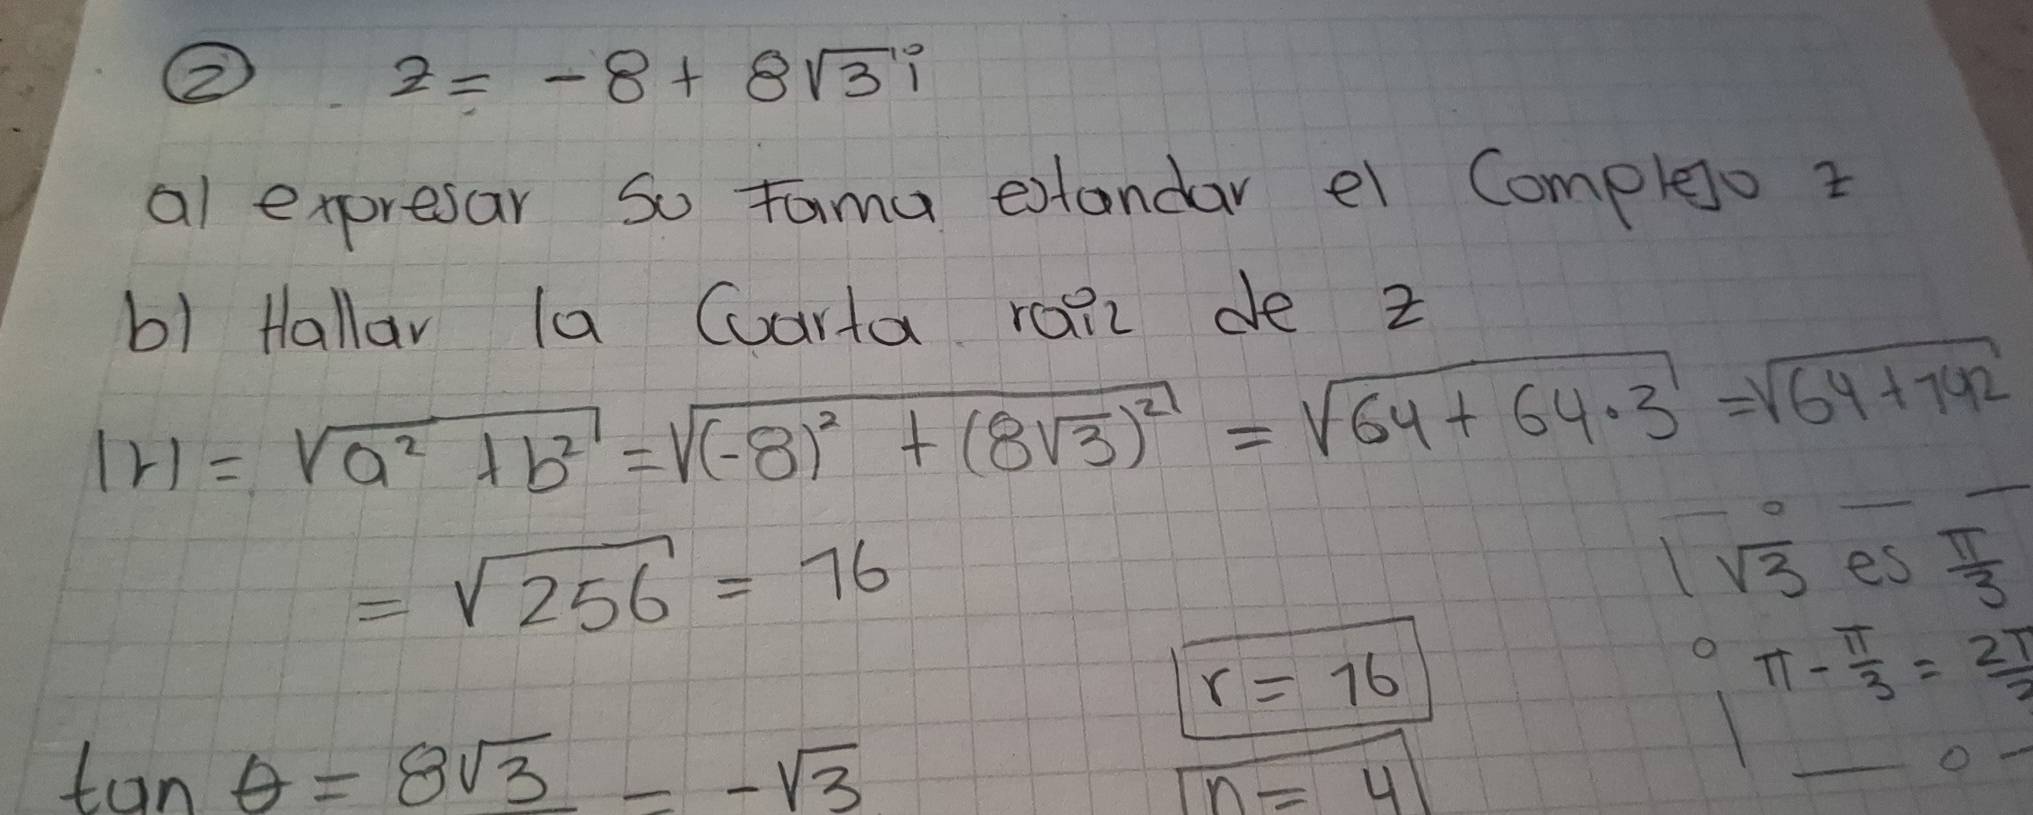 ② z = -8 + 8√3 i
a) expresar su forma estandar el Complejo z
b) Hallar la Cuarta raiz de z
|r| = √(a² + b²) = √((-8)² + (8√3)²) = √(64 + 64·3) = √(64 + 192)
= √256 = 16
√3 es π/3
r = 16
π - π/3 = 2π/3
tan θ = 8√3 = -√3
n = 4